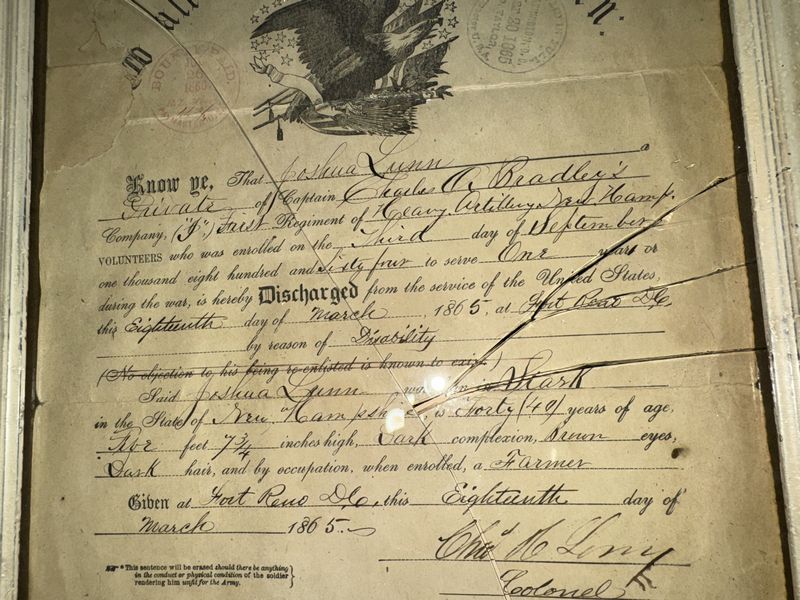 To all
BOUNTY PAID
Know ye, That Joshua Lunn a
Private of Captain Charles O. Bradley's
Company, ("I") First Regiment of Heavy Artillery New Hamp.
VOLUNTEERS who was enrolled on the Third day of September
one thousand eight hundred and Sixty four to serve One years or
during the war, is hereby Discharged from the service of the United States,
this Eighteenth day of March, 1865, at Fort Reno D.C.
by reason of Disability
(No objection to his being re-enlisted is known to exist.*)
Said Joshua Lunn was born in Stark
in the State of New Hampshire, is Forty (40) years of age,
Five feet 7 3/4 inches high, Dark complexion, Brown eyes,
Dark hair, and by occupation, when enrolled, a Farmer
Given at Fort Reno D.C. this Eighteenth day of
March 1865.
Chas H Long
Colonel
* This sentence will be erased should there be anything
in the conduct or physical condition of the soldier
rendering him unfit for the Army.